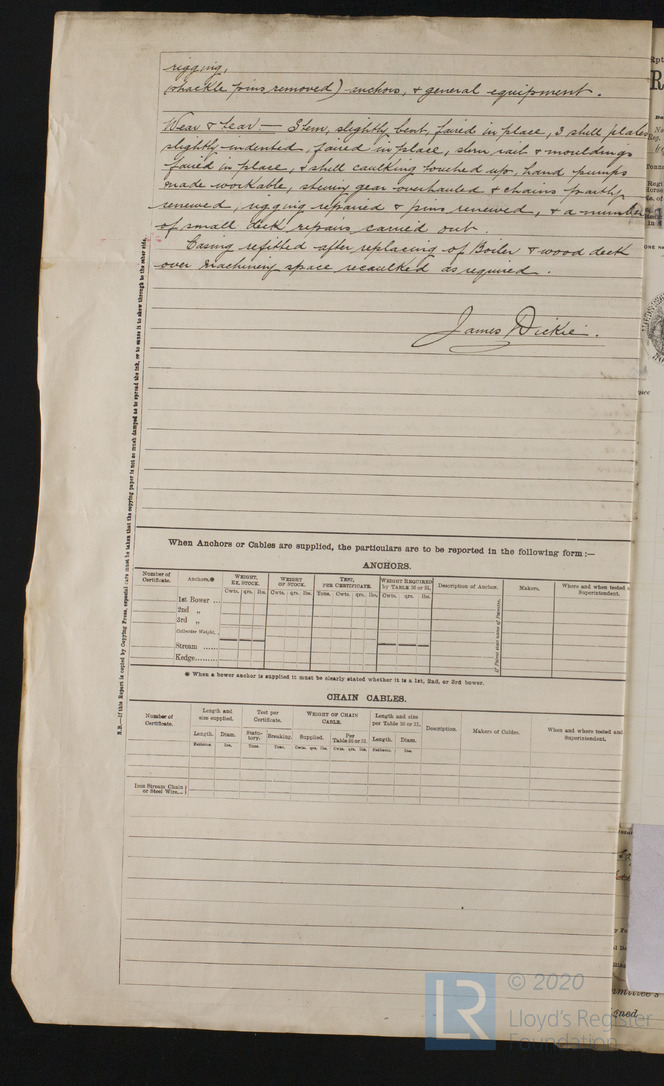 rigging,
(shackle pins removed) anchors, & general equipment.
Wear & Tear:— Stem, slightly bent, faired in place, 3 shell plates
slightly indented, faired in place, stern rail & mouldings
faired in place, & shell caulking touched up, hand pumps
made workable, steering gear overhauled & chains partly
renewed, rigging repaired & pins renewed, & a number
of small deck repairs carried out.
Casing refitted after replacing of Boiler & wood deck
over machinery space recaulked as required.
James Dickie.
N.B.—If this Report is copied by Copying Press, especial care must be taken that the copying paper is not so much damped as to spread the ink, or to cause it to show through to the other side.
When Anchors or Cables are supplied, the particulars are to be reported in the following form:—
ANCHORS.
Number of Certificate. Anchors.* WEIGHT, EX. STOCK. WEIGHT OF STOCK. TEST, PER CERTIFICATE. WEIGHT REQUIRED by TABLE 30 or 31. Description of Anchor. Makers. Where and when tested Superintendent.
Cwts. qrs. lbs. Cwts. qrs. lbs. Tons. Cwts. qrs. lbs. Cwts. qrs. lbs.
1st Bower ...
2nd „
3rd „
Collective Weight.
Stream ......
Kedge.........
If Patent state name of Patentee.
* When a bower anchor is supplied it must be clearly stated whether it is a 1st, 2nd, or 3rd bower.
CHAIN CABLES.
Number of Certificate. Length and size supplied. Test per Certificate. WEIGHT OF CHAIN CABLE. Length and size per Table 30 or 31. Description. Makers of Cables. When and where tested and Superintendent.
Length. Diam. Statutory. Breaking. Supplied. Per Table 30 or 31. Length. Diam.
Fathoms. Ins. Tons. Tons. Cwts. qrs. lbs. Cwts. qrs. lbs. Fathoms. Ins.
Iron Stream Chain or Steel Wire...}
© 2020
LR
Lloyd's Register
Foundation